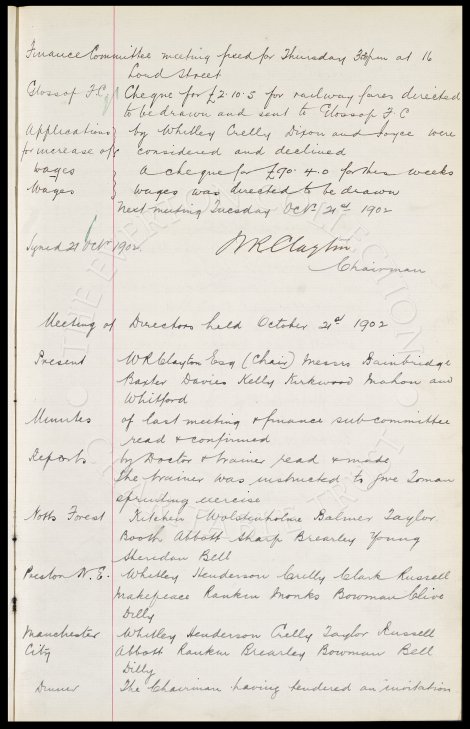 Finance Committee meeting fixed for Thursday 3.30pm at 16
Lord Street
Glossop F.C. Cheque for £2.10.3 for railway fares directed
to be drawn and sent to Glossop F.C
Applications by Whitley Crelly Dixon and Joyce were
for increase of considered and declined
wages A cheque for £90.4.0 for this weeks
Wages wages was directed to be drawn
Next meeting Tuesday Octr 21st 1902
Signed 21 Octr 1902. W R Clayton
Chairman
Meeting of Directors held October 21st 1902
Present W R Clayton Esq (Chair) Messrs Bainbridge
Baxter Davies Kelly Kirkwood Mahon and
Whitford
Minutes of last meeting & finance sub-committee
read & confirmed
Reports by Doctor & trainer read & made
The trainer was instructed to give Toman
sprinting exercise
Notts Forest Kitchen Wolstenholme Balmer Taylor
Booth Abbott Sharp Brearley Young
Sheridan Bell
Preston N.E. Whitley Henderson Crelly Clark Russell
Makepeace Rankin Monks Bowman Clive
Dilly
Manchester Whitley Henderson Crelly Taylor Russell
City Abbott Rankin Brearley Bowman Bell
Dilly
Dinner The Chairman having tendered an invitation